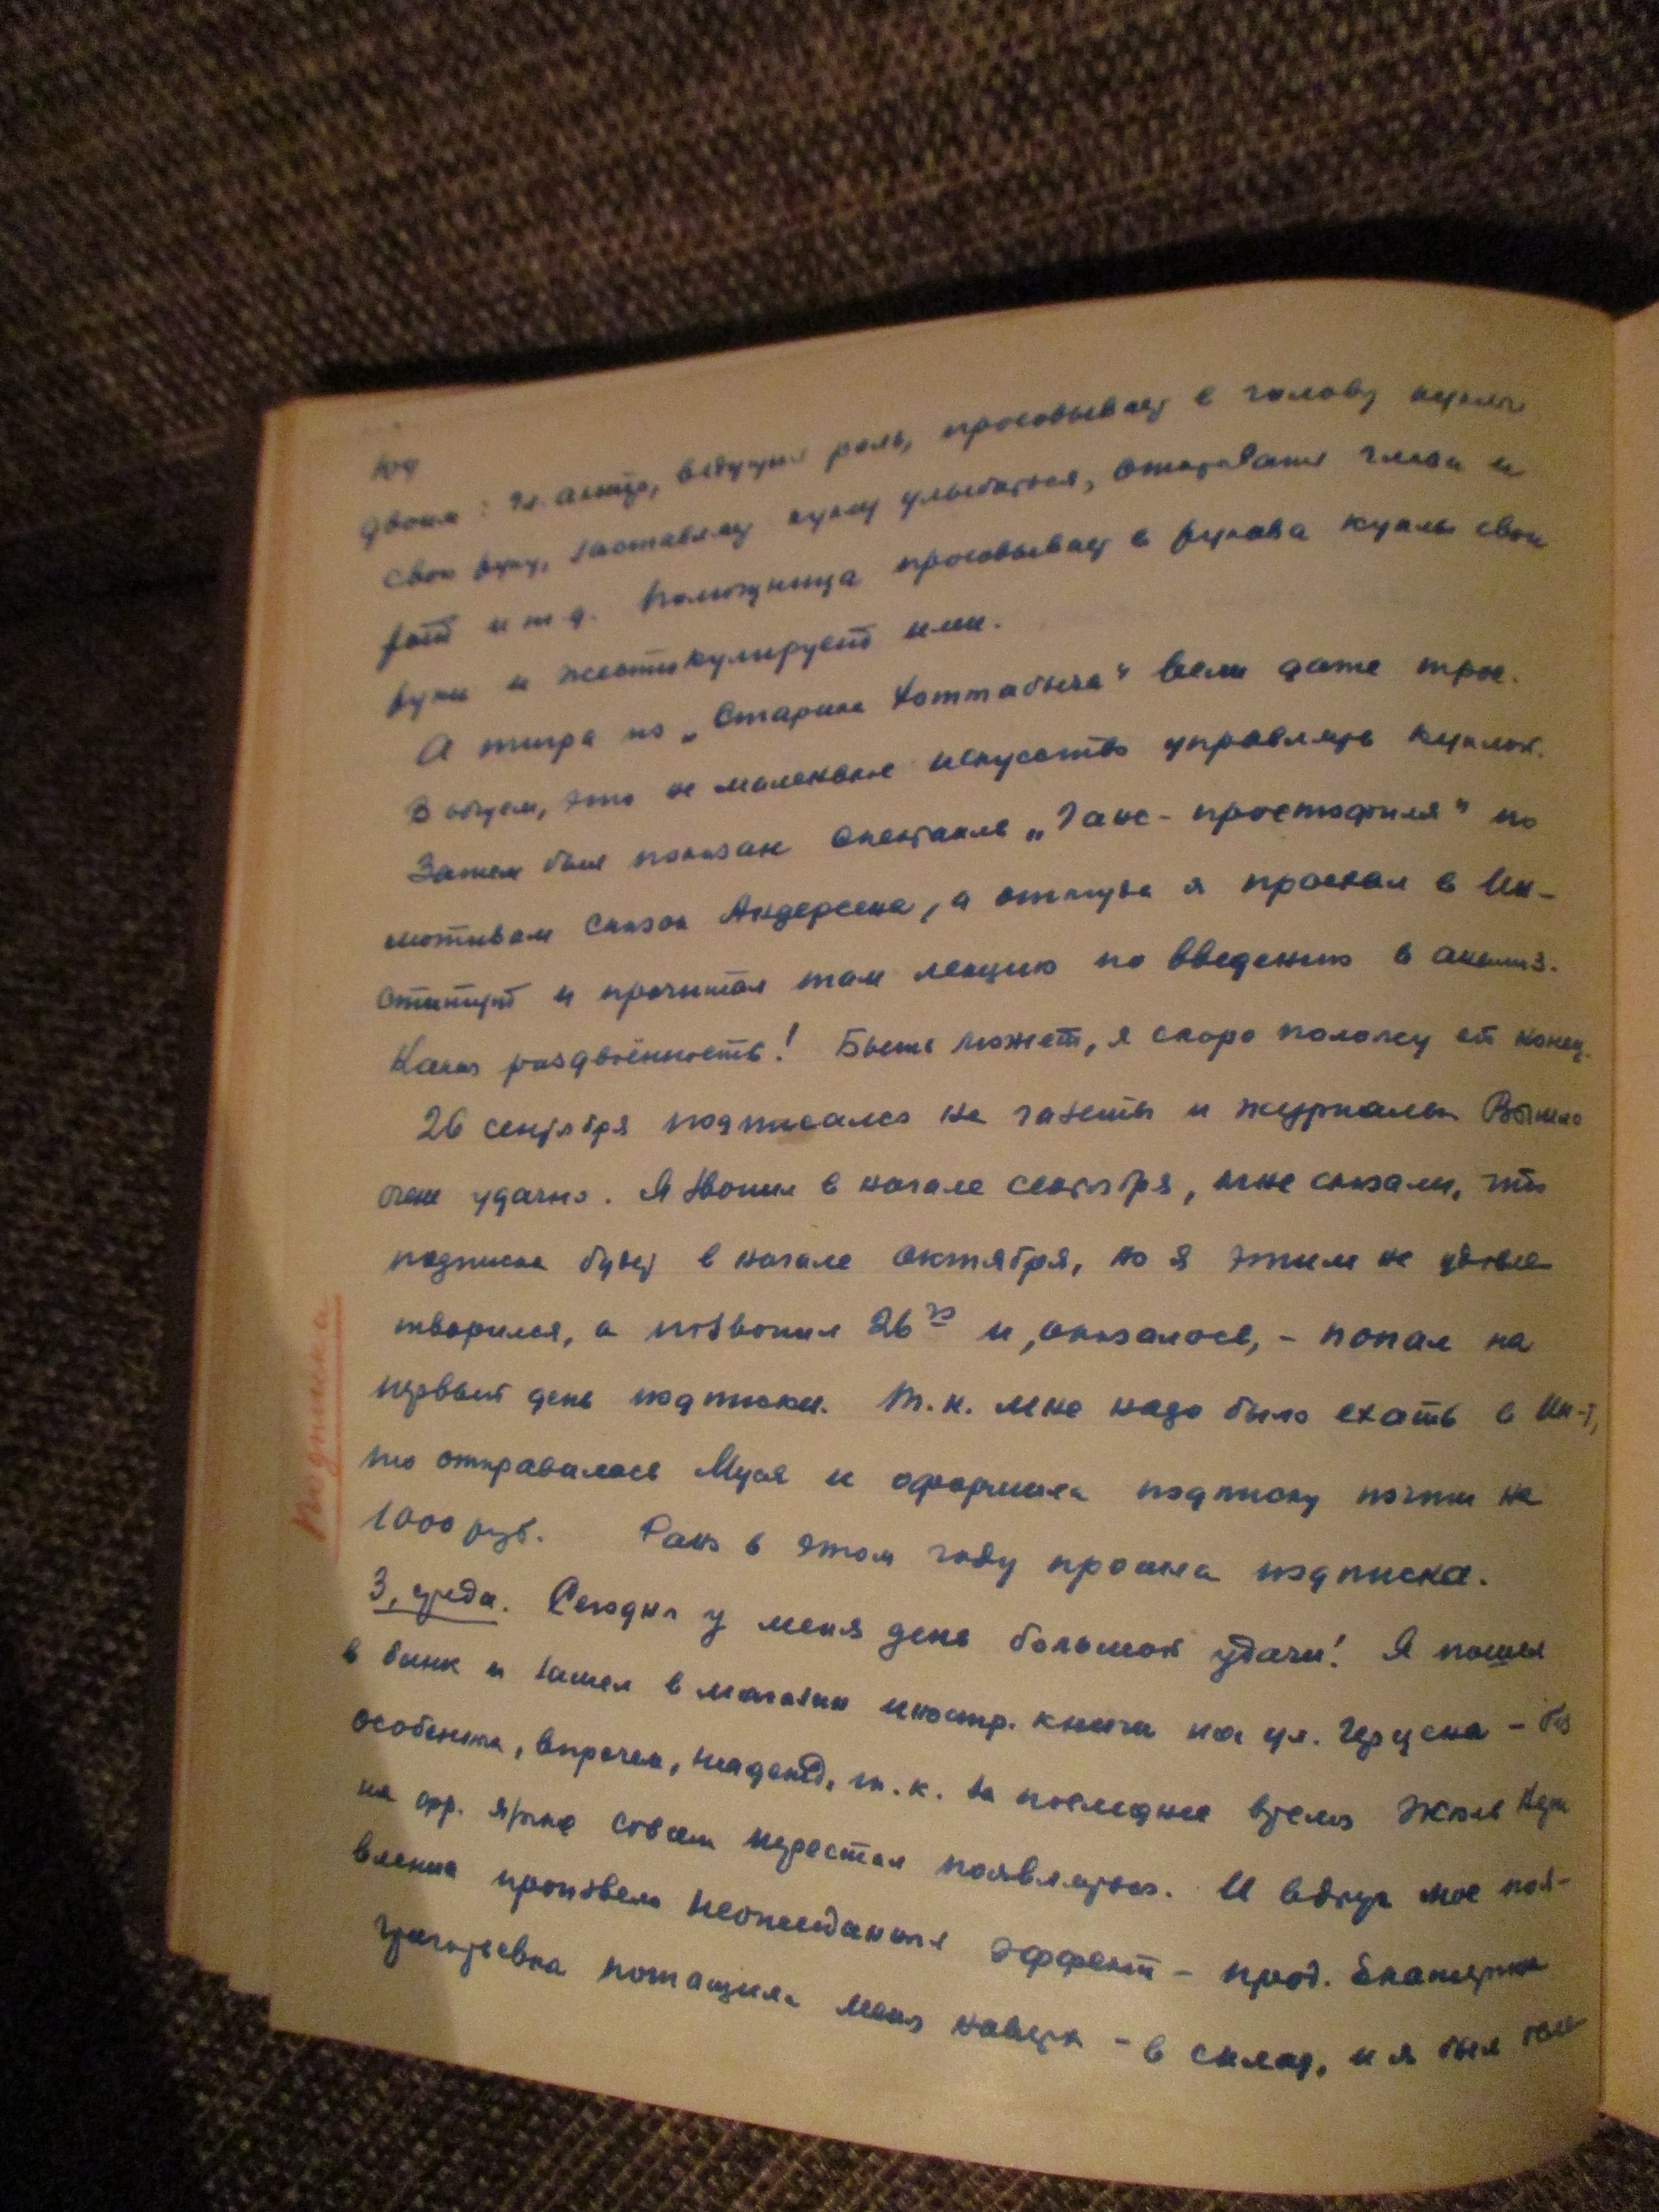 двоим: гл. актер, ведущий роль, просовывает в голову куклы
свою руку, заставляет куклу улыбаться, открывать глаза и
рот и т.д. Помощница просовывает в рукава куклы свои
руки и жестикулирует ими.
А тигра из „Старика Хоттабыча" вели даже трое.
В общем, это не маленькое искусство управлять куклой.
Затем был показан спектакль „Ганс-простофиля" по
мотивам сказок Андерсена, а оттуда я проехал в Ин-
ститут и прочитал там лекцию по введению в анализ.
Какая раздвоенность! Быть может, я скоро положу ей конец.
26 сентября подписался на газеты и журналы. Вышло
очень удачно. Я звонил в начале сентября, мне сказали, что
подписка будет в начале октября, но я этим не удовле
творился, а позвонил 26го и, оказалось, - попал на
первый день подписки. Т.к. мне надо было ехать в Ин-т,
то отправилась Муся и оформила подписку почти на
1000 руб. Так в этом году прошла подписка.
Подписка
3, среда. Сегодня у меня день большой удачи! Я пошел
в банк и зашел в магазин иностр. книги на ул. Герцена - без
особенных, впрочем, надежд, т.к. за последнее время Жюль Верн
на фр. языке совсем перестал появляться. И вдруг мое поя-
вление произвело неожиданный эффект - прод. Екатерина
Григорьевна потащила меня наверх - в склад, и я был